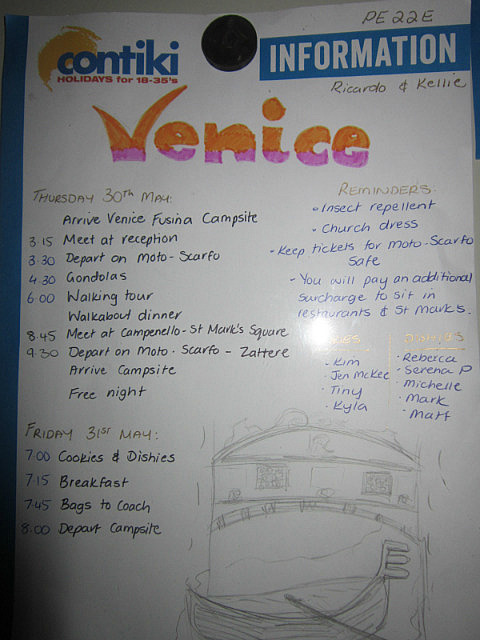 PE22E
contiki
HOLIDAYS for 18-35's
INFORMATION
Ricardo & Kellie
Venice
THURSDAY 30TH MAY:
Arrive Venice Fusina Campsite
3.15 Meet at reception
3.30 Depart on Moto-Scarfo
4.30 Gondolas
6.00 Walking tour
Walkabout dinner
8.45 Meet at Campenello-St Mark's Square
9.30 Depart on Moto-Scarfo - Zattere
Arrive Campsite
Free night
REMINDERS:
- Insect repellent
- Church dress
- Keep tickets for Moto-Scarfo
safe
- You will pay an additional
surcharge to sit in
restaurants & St Mark's.
- Kim
- Jen McKee
- Tiny
- Kyla
DISHIES
- Rebecca
- Serena P
- Michelle
- Mark
- Matt
FRIDAY 31ST MAY:
7.00 Cookies & Dishies
7.15 Breakfast
7.45 Bags to Coach
8.00 Depart Campsite